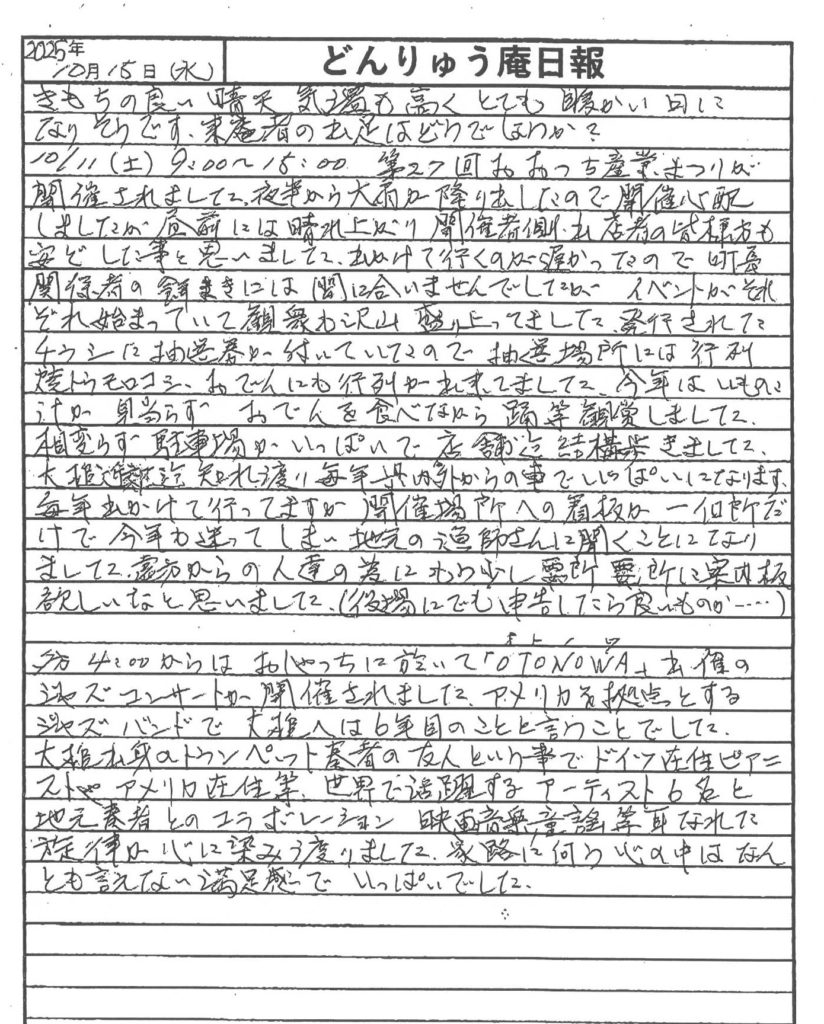 2025年
10月15日(水)
どんりゅう庵日報
きもちの良い晴天 気温も高く とても 暖かい日に
なりそうです、来庵者の出足はどうでしょうか?
10/11(土) 9:00〜15:00 第27回おおつち産業まつりが
開催されました、夜半から大雨が降り出したので開催心配
しましたが 昼前には晴れ上がり 開催者側・出店者の皆様方も
安どした事と思いました、出かけて行くのが遅かったので町長
関係者の餅まきには間に合いませんでしたが イベントがそれ
ぞれ始まっていて観衆も沢山 盛り上ってました、発行された
チラシに抽選券が付いていたので 抽選場所には行列
焼トウモロコシ、おでんにも行列が出来てました、今年は いものこ
汁が 見当らず おでんを食べながら 踊等観賞しました、
相変らず 駐車場がいっぱいで 店舗迄 結構歩きました、
大槌 迄 知れ渡り毎年県内外からの車でいっぱいになります、
毎年出かけて行ってますが 開催場所への看板が 一個所だ
けで 今年も迷ってしまい地元の漁師さんに聞くことになり
ました、遠方からの人達の為にもう少し要所要所に案内板
欲しいなと思いました、(役場にでも申告したら良いものか……)
夕方4:00からは おしゃっちに於いて「OTONOWA」主催の
ジャズコンサートが開催されました、アメリカを拠点とする
ジャズバンドで 大槌へは6年目のことと言うことでした、
大槌出身のトランペット奏者の友人という事でドイツ在住ピアニ
ストや アメリカ在住等、世界で活躍する アーティスト6名と
地元奏者とのコラボレーション 映画音楽、童謡等耳なれた
旋律が心に染みう渡りました、家路に向う心の中は なん
とも言えない満足感で いっぱいでした、